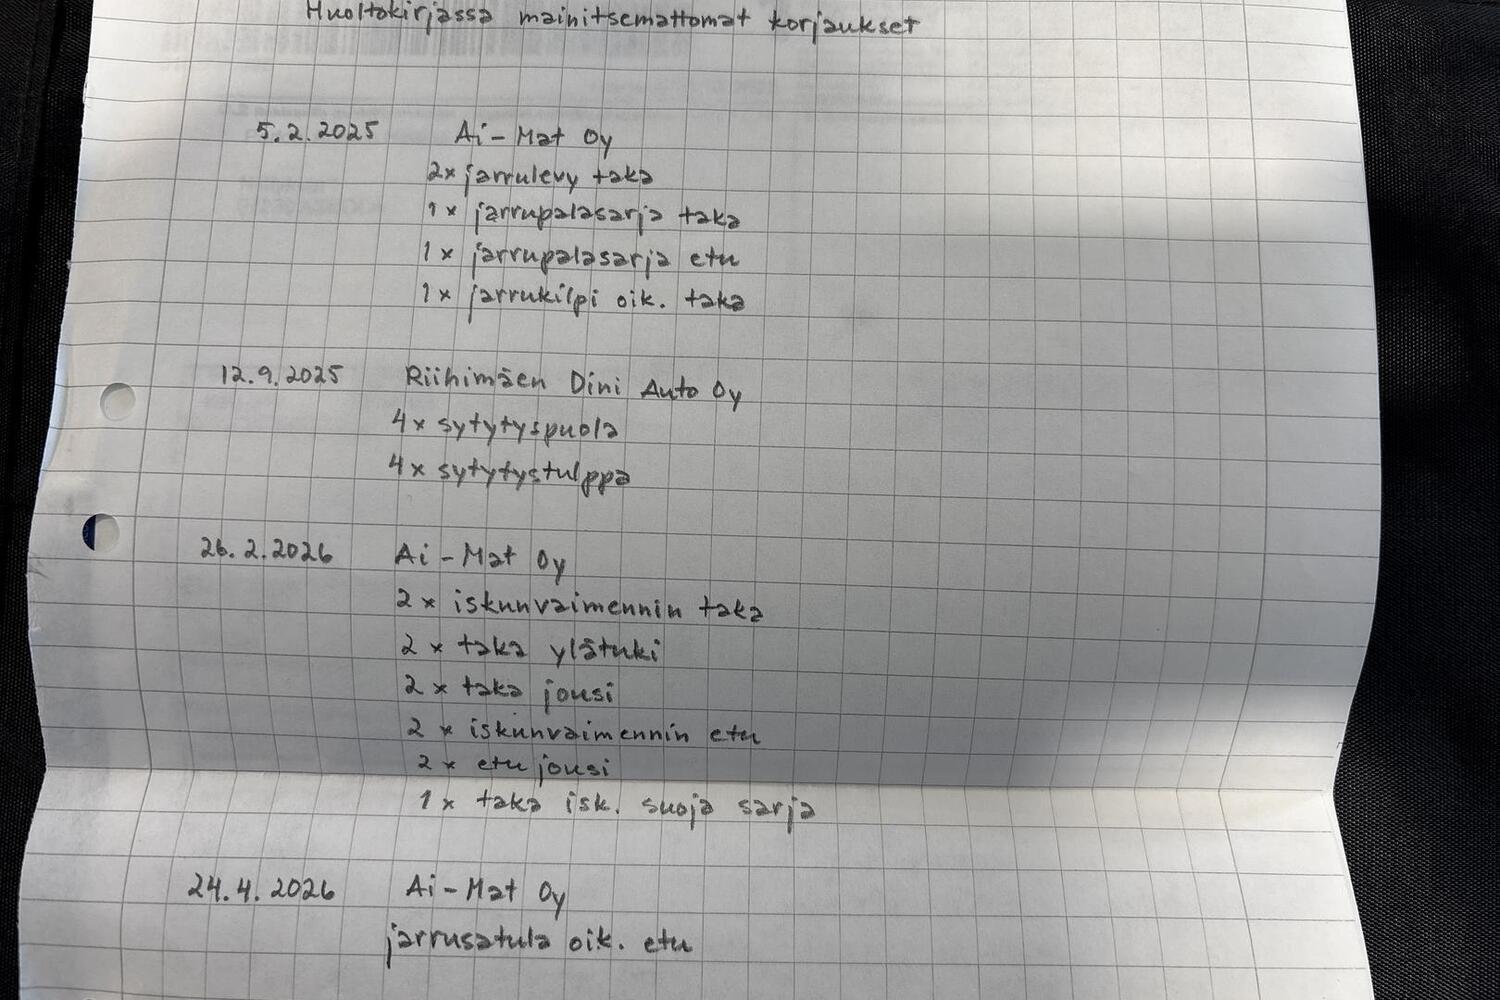 Huoltokirjassa mainitsemattomat korjaukset
5.2.2025 Ai-Mat Oy
2x jarrulevy taka
1x jarrupalasarja taka
1x jarrupalasarja etu
1x jarrukilpi oik. taka
12.9.2025 Riihimäen Dini Auto Oy
4x sytytyspuola
4x sytytystulppa
26.2.2026 Ai-Mat Oy
2x iskunvaimennin taka
2x taka ylätuki
2x taka jousi
2x iskunvaimennin etu
2x etu jousi
1x taka isk. suoja sarja
24.4.2026 Ai-Mat Oy
jarrusatula oik. etu